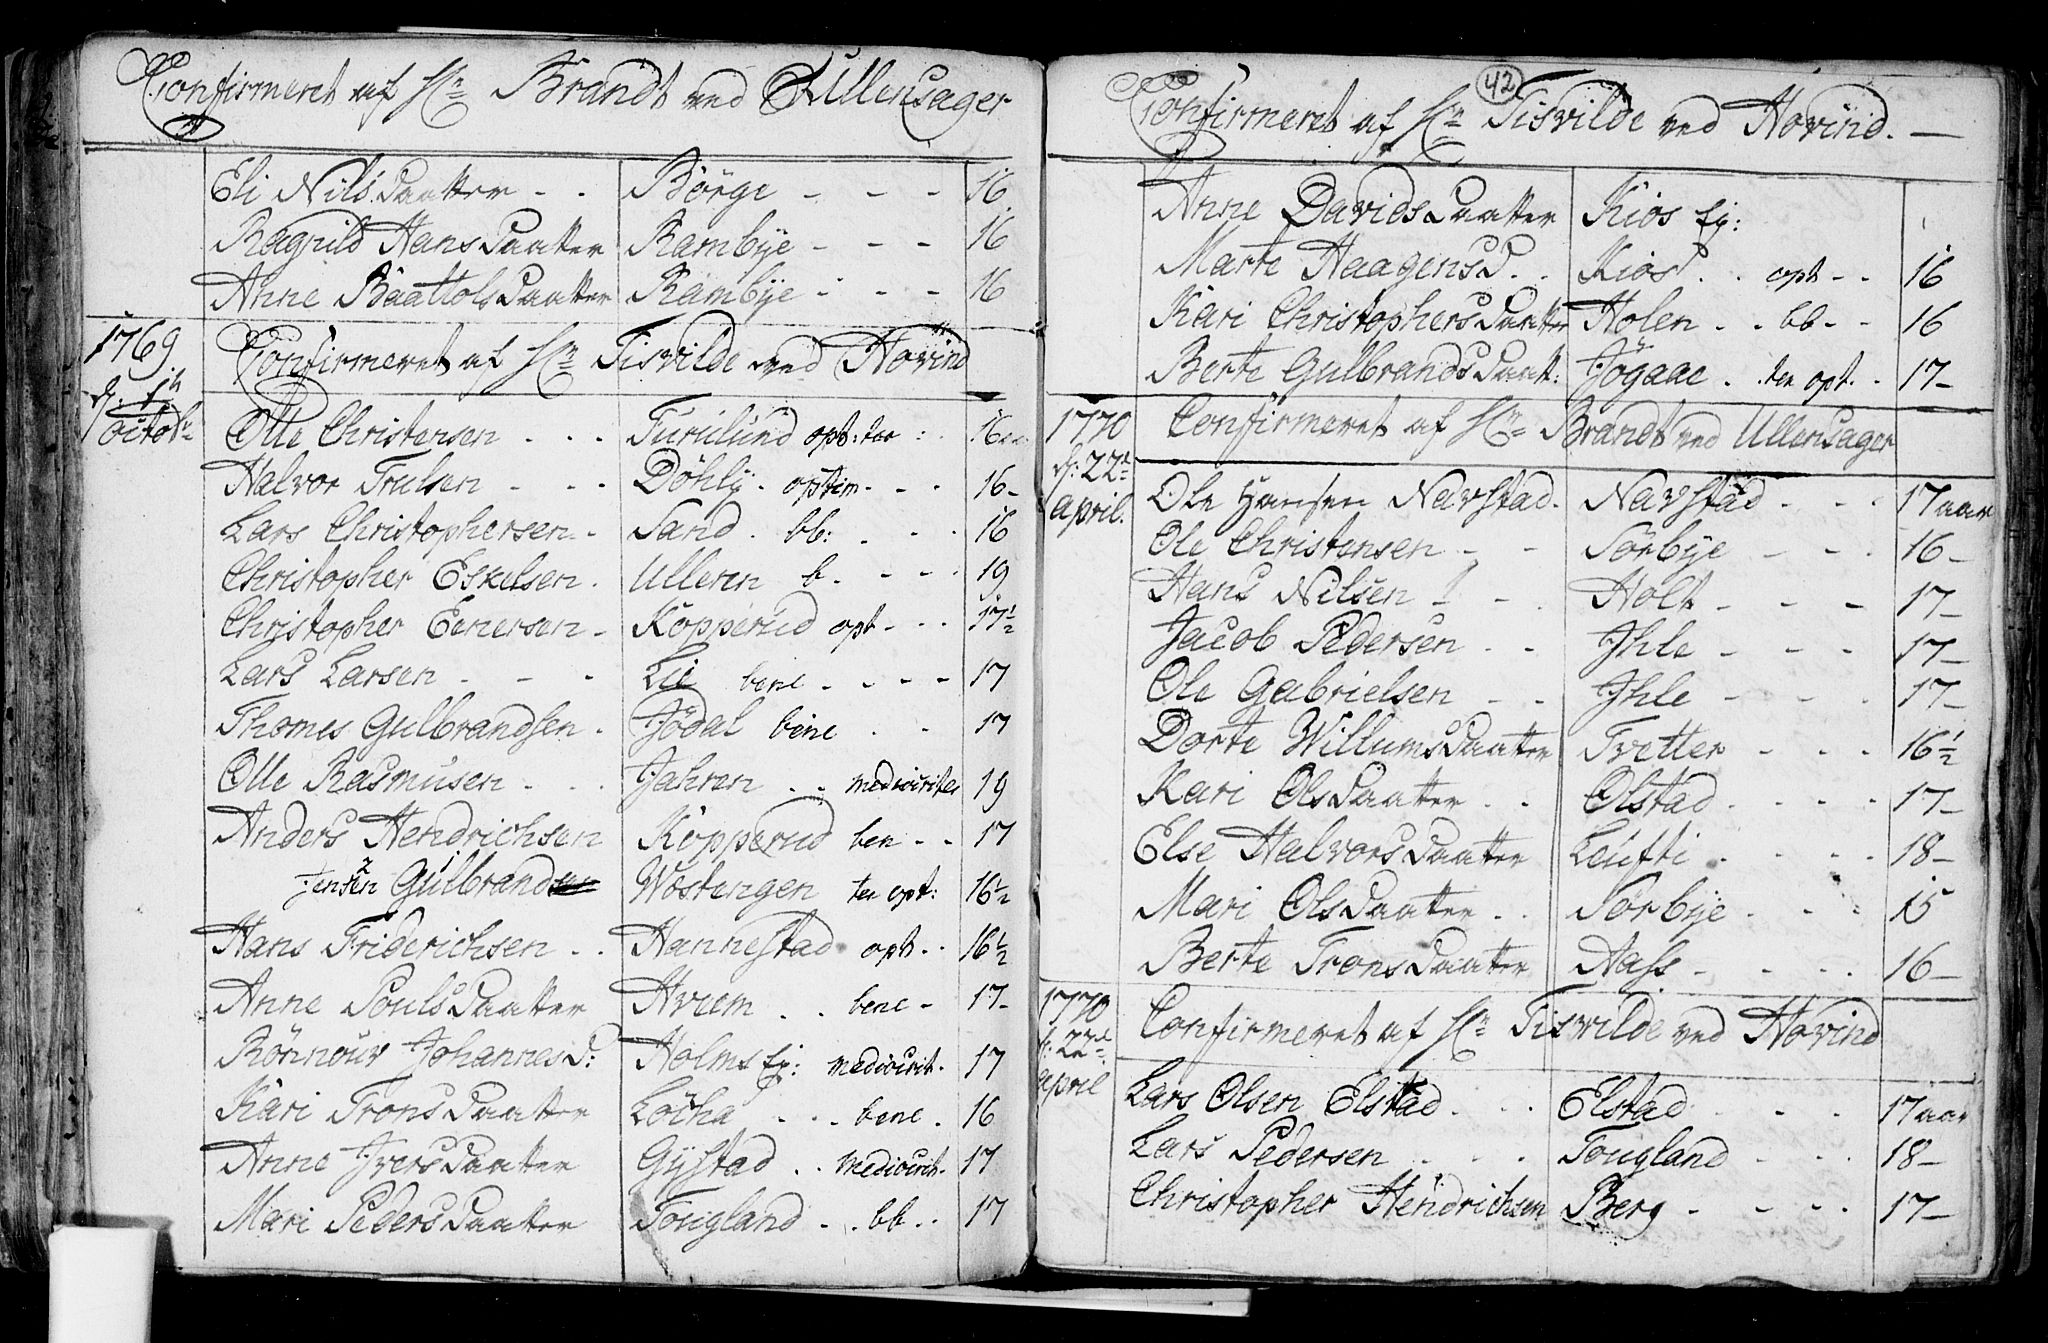 Confirmeret af Hr. Brandt ved Ullensager
Eli Nils Daatter - - Börge - - - 16
Ragnild Hans Daatter Rambÿe - - - 16
Anne Baattols Daatter Rambÿe - - - 16
1769 Confirmeret af Hr. Tisvilde ved Hovind
d. 1te octobr
Olle Christensen - - - Furulund opt: ter : 16 aar
Halvor Trulsen - - - Döhly - optim - - - 16 -
Lars Christophersen - Sand . bb: . - - 16
Christopher Eskelsen . Ulleren b. - - - 19
Christopher Eenersen - Kopperud opt - - - 17½
Lars Larsen - - - Lie bene - - - - 17
Thomes Gulbrandsen . Jödal bene . - 17
Olle Rasmusen - . . Jahren . . mediocriter 19
Anders Hendrichsen Kopperud ben - - 17
Jensen 2 Gulbrand Wostengen ter opt: 16½
Hans Friderichsen . . Hannestad opt . . 16½
Anne Pouls Daatter Hvem . . bene - 17 -
Rönnouv Johannes D: Holms Ej: mediocrit. 17
Kari Trons Daatter Löcha - . . bene . 16
Anne Jvers Daatter Gÿstad . . mediocrit. 17
Mari Peders Daatter Fougland . . bb . . 17
42
Confirmeret af Hr. Tisvilde ved Hovind. —
Anne Davids Daatter Kios Ej:
Marte Haagens D. . Kios . . opt - - 16
Kari Christophers Daatter Holen . . bb - - 16
Berte Gulbrands Daatt: Jögaae . . ter opt . . 17 -
1770 Confirmeret af Hr. Brandt ved Ullensager
d: 22de april.
Ole Hansen Navstad. Navstad - - - 17 aar
Ole Christensen - - Sörbÿe - - - 16 -
Hans Nilsen - - . Holt - - - 17 -
Jacob Pedersen - - Jhle - - - 17 -
Ole Gabrielsen - - Jhle - - - 17 -
Dorte Willums Daatter Tvetter - - - 16½
Kari Ols Daatter . . Olstad . - - - 17 -
Else Halvors Daatter Leufti . - - - 18 -
Mari Ols Daatter . . Sörbÿe . - - - 15
Berte Trons Daatter Aass - - - - 16 -
1770 Confirmeret af Hr. Tisvilde ved Hovind
d: 22de april
Lars Olsen Elstad . . . Elstad - - - 17 aar
Lars Pedersen - - - Fougland - - - 18 -
Christopher Hendrichsen Berg - - - - 17 -